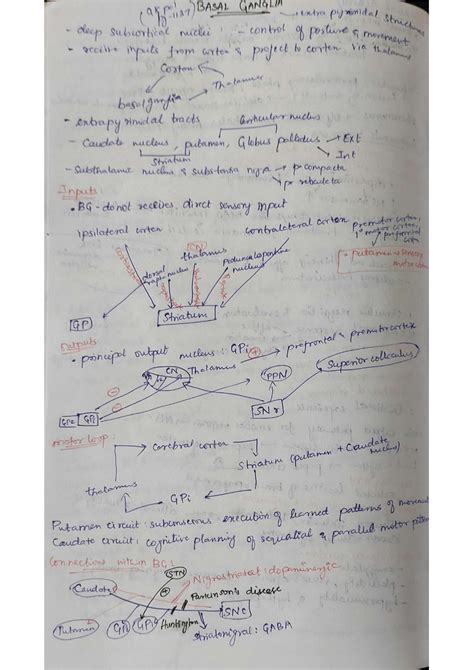 BASAL GANGLIA
extra pyramidal structures
- deep subcortical nuclei - control of posture & movement
- receive inputs from cortex & project to cortex via thalamus
Cortex
Thalamus
basal ganglia
- extrapyramidal tracts
lenticular nucleus
- Caudate nucleus, putamen, Globus pallidus → Ext
Int
Striatum
- Subthalamic nucleus & substansia nigra → pr compacta
pr reticulata
Inputs:
• BG - do not receives direct sensory input
Ipsilateral cortex
contralateral cortex
premotor cortex,
1° motor cortex,
prefrontal cortex
thalamus
dorsal raphe nucleus
pedunculopontine nucleus
• putamen → sensory motor cortex
GP
Striatum
Outputs
• principal output nucleus : GPi
prefrontal & premotor cortex
CN
Thalamus
PPN
Superior colliculus
GPe GPi
SNr
Motor loop:
cerebral cortex
Striatum (putamen + Caudate nucleus)
thalamus
GPi
Putamen circuit : subconscious execution of learned patterns of movement
Caudate circuit : cognitive planning of sequential & parallel motor
Connections within BG:
STN
Nigrostriatal : dopaminergic
Caudate
Parkinson's disease
SNc
Putamen
GPe GPi
Huntington
Striatonigral : GABA